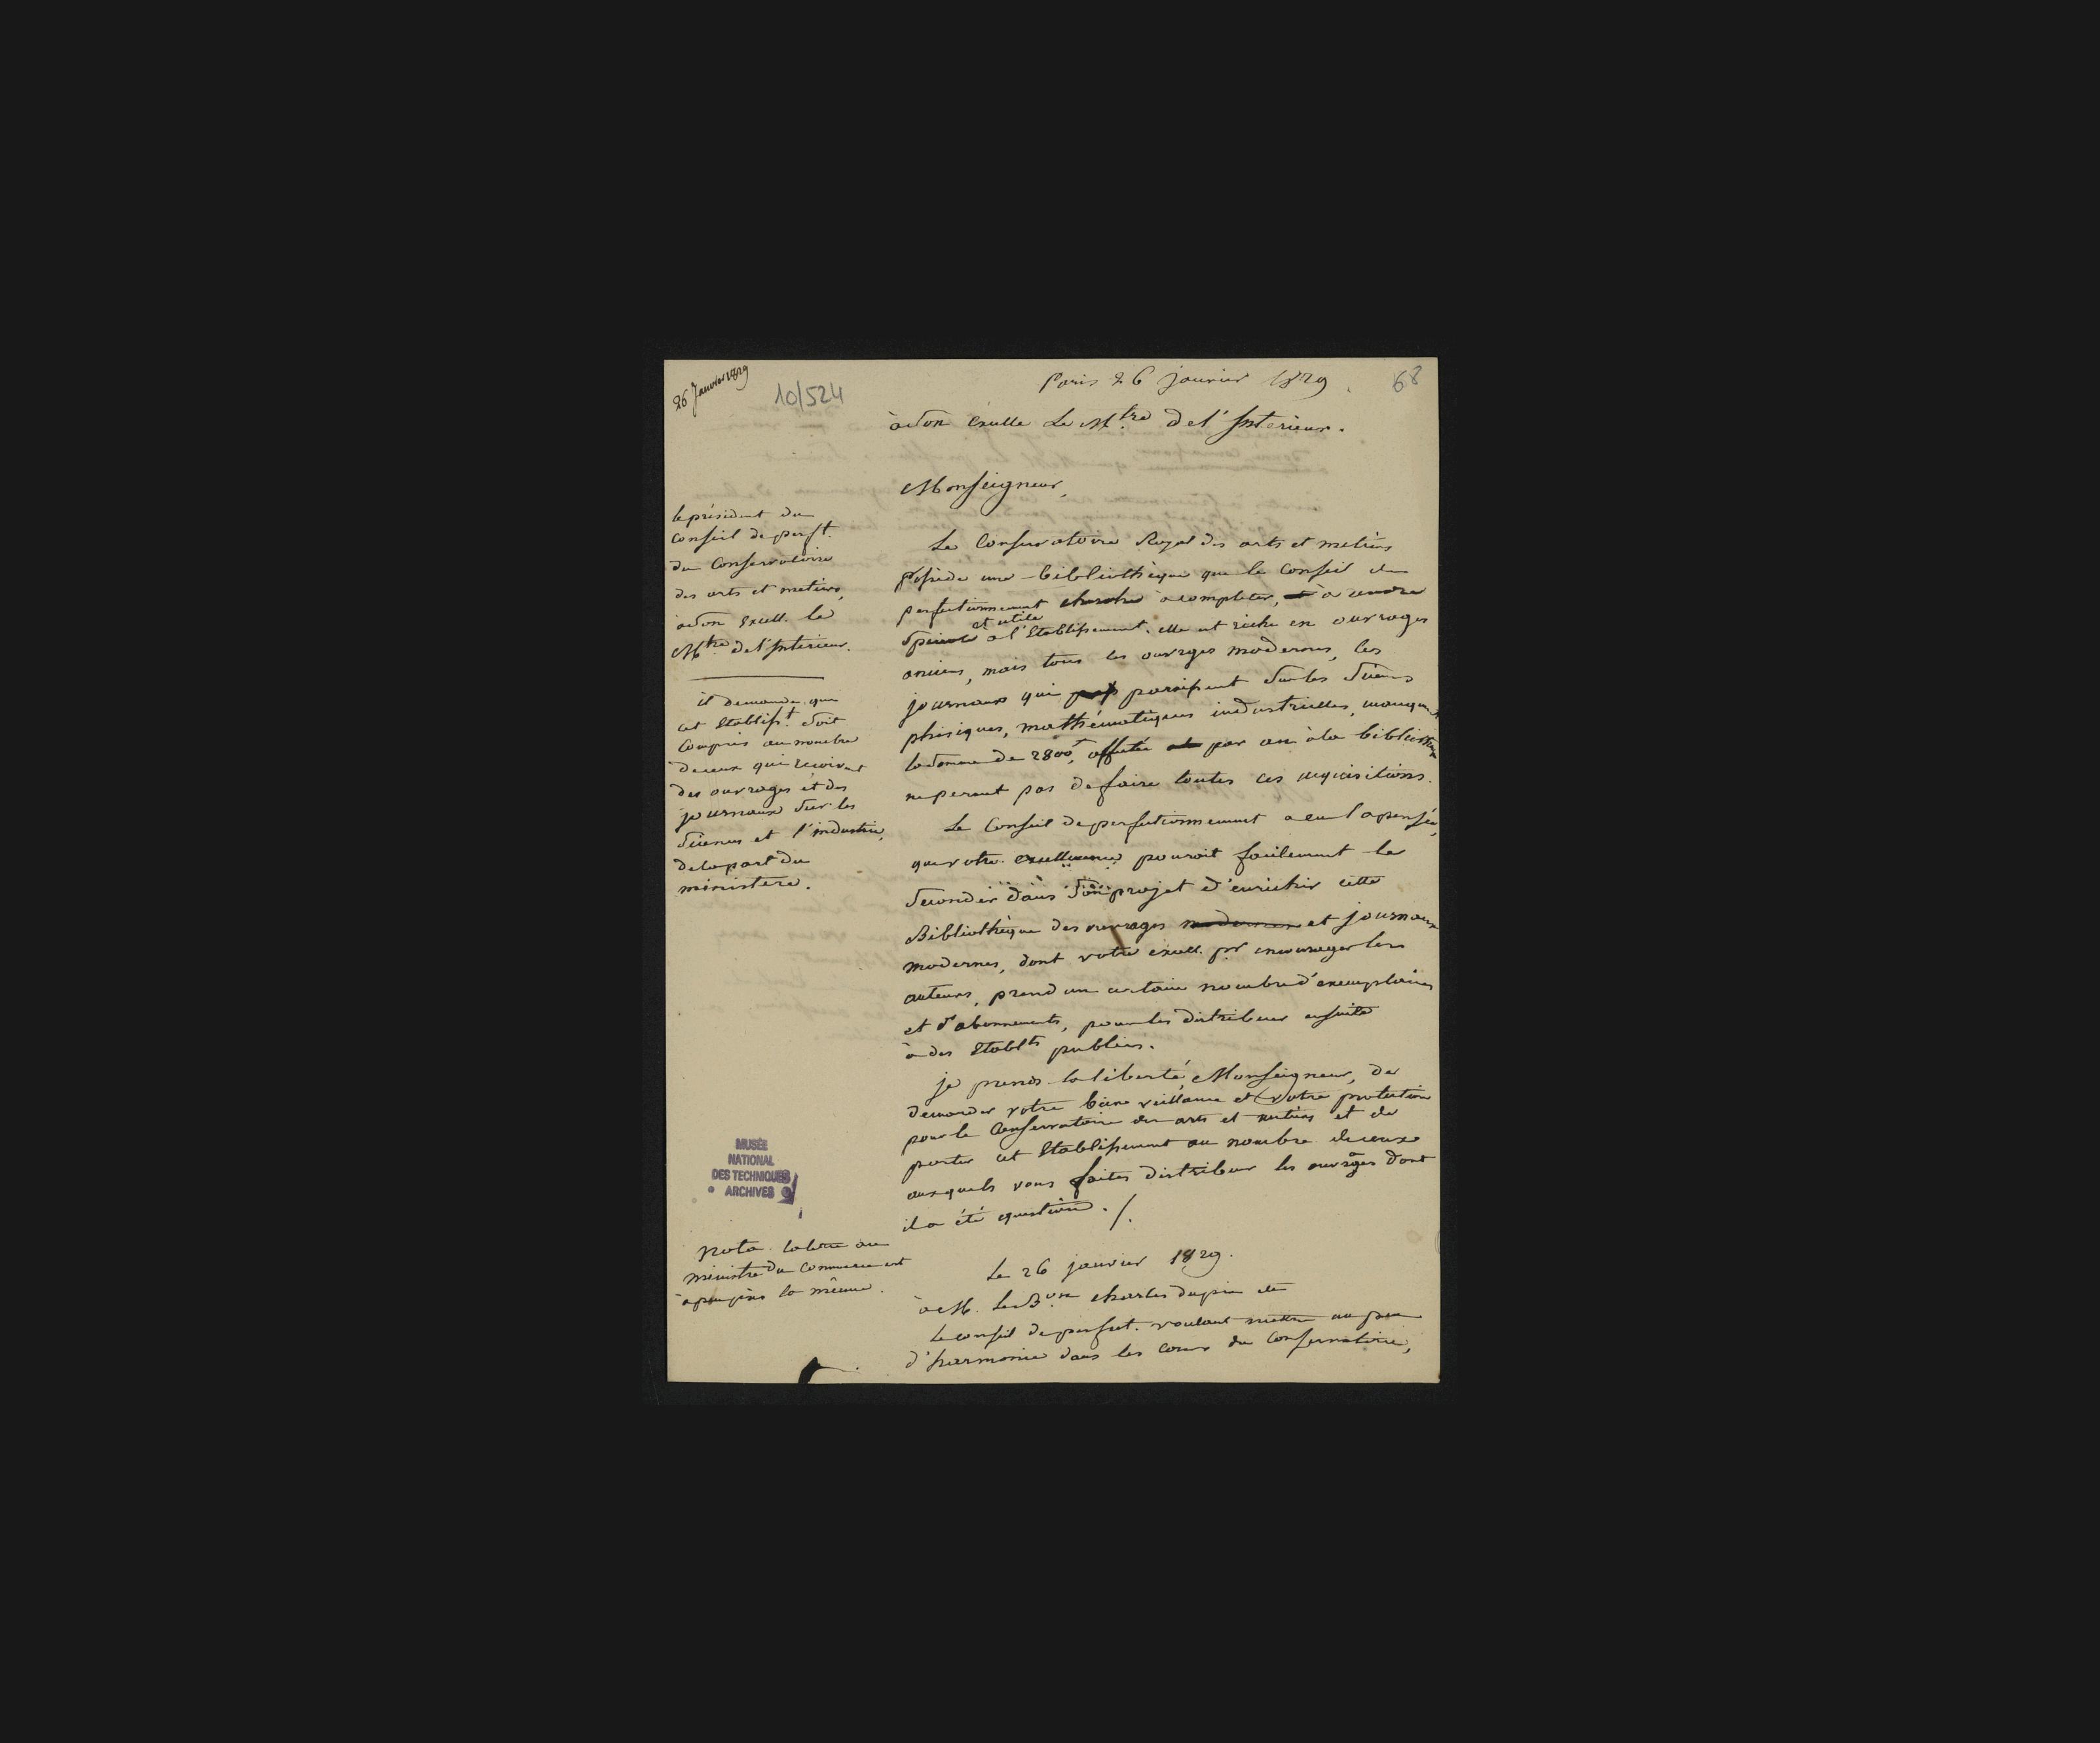 26 Janvier 1829
10/524
Paris 26 janvier 1829.
68
à Son Excelle Le Mtre De l'Intérieur.
Monseigneur,
le président du
Conseil de perft.
du Conservatoire
des arts et metiers,
à Son Excell. le
Mtre de l'Intérieur.
il Demande que
cet Establisst. Soit
Compris au nombre
de ceux qui reçoivent
des ouvrages et des
journaux Sur les
Sciences et l'industrie,
de la part du
ministere.
Le Conservatoire Royal des arts et metiers
possède une bibliothèque que le Conseil de
perfectionnement cherche à completer, à
et utile
à l'Etablissement. elle est riche en ouvrages
anciens, mais tous les ouvrages modernes, les
journaux qui paroissent Sur les Sciences
phisiques, mathématiques industrielles, manquent
la Somme de 2800f, affectée par an à la bibliothèque
ne permet pas de faire toutes ces acquisitions.
Le Conseil de perfectionnement a eu la pensée,
que votre excellence pouroit facilement le
Seconder dans Son projet d'enrichir cette
Bibliothèque des ouvrages modernes et journaux
modernes, dont votre excell. pr encourager les
auteurs, prend un certain nombre d'exemplaires
et d'abonnements, pour les distribuer ensuite
à des Etablts publics.
je prends la liberté, Monseigneur, de
demander votre bienveillance et votre protection
pour le Conservatoire des arts et metiers et de
porter cet Etablissement au nombre de ceux
auxquels vous faites distribuer les ouvrages dont
il a été question. /.
MUSÉE
NATIONAL
DES TECHNIQUES
ARCHIVES
Nota la lettre au
ministre du Commerce est
à peu près la même.
Le 26 janvier 1829.
à M. Le Bon charles dupin
Le conseil de perfect. voulant mettre un peu
d'harmonie dans les Cours du Conservatoire,